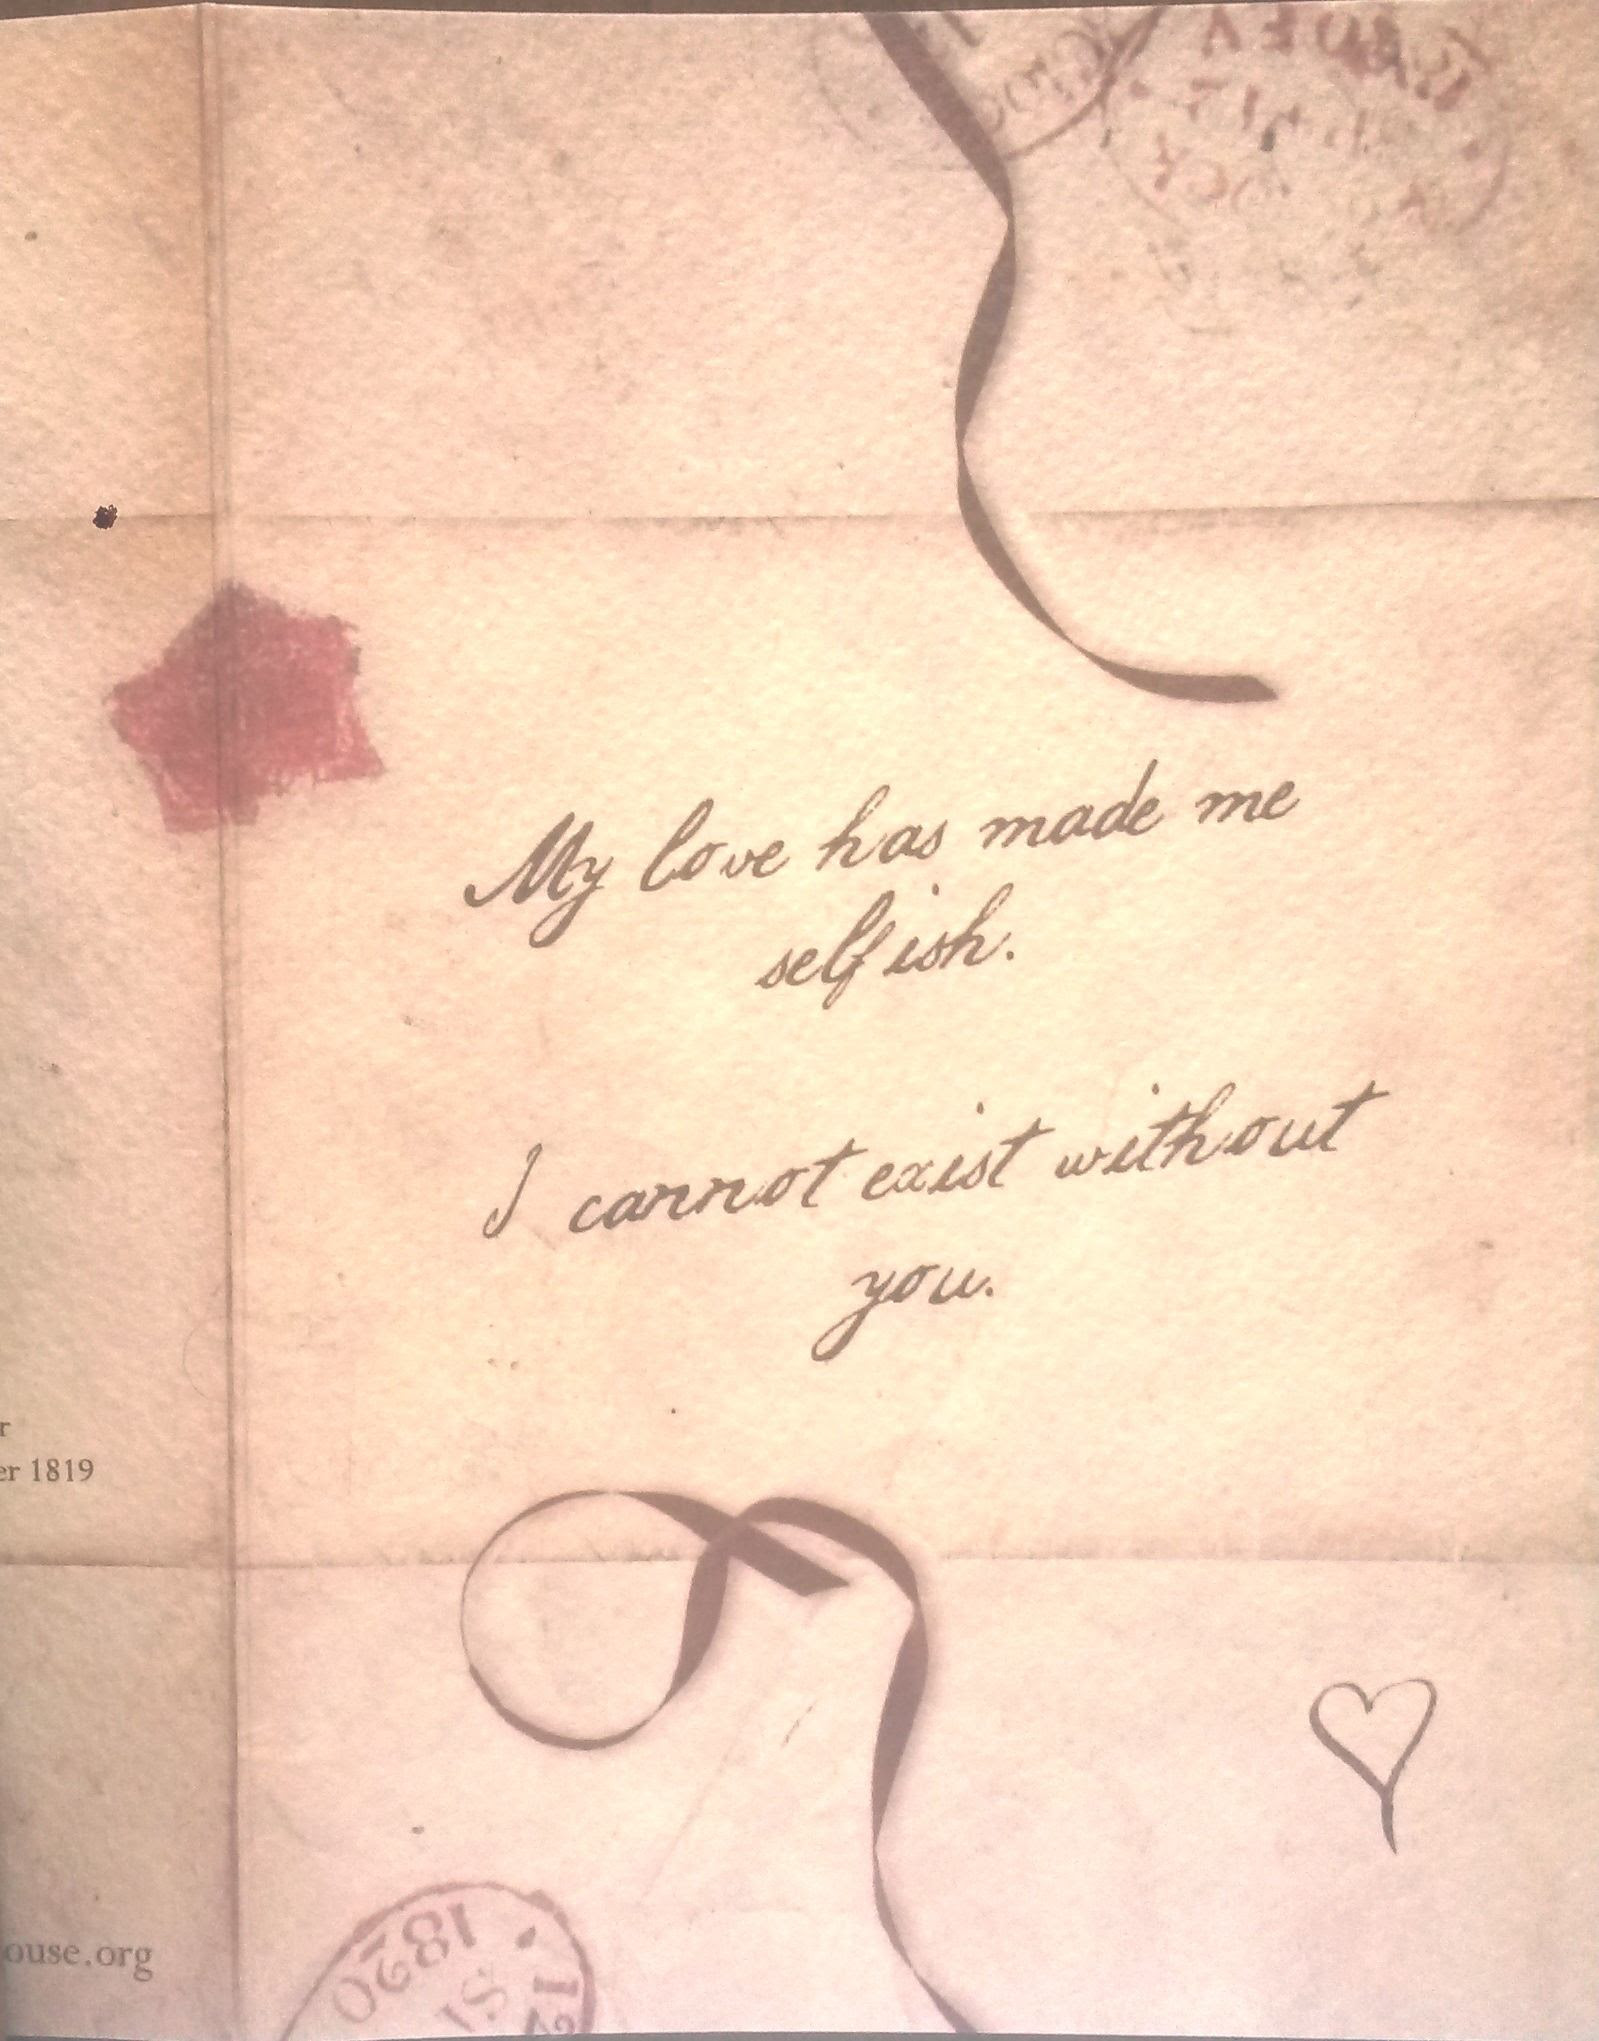 My love has made me
selfish.
I cannot exist without
you.
r
er 1819
ouse.org
1820